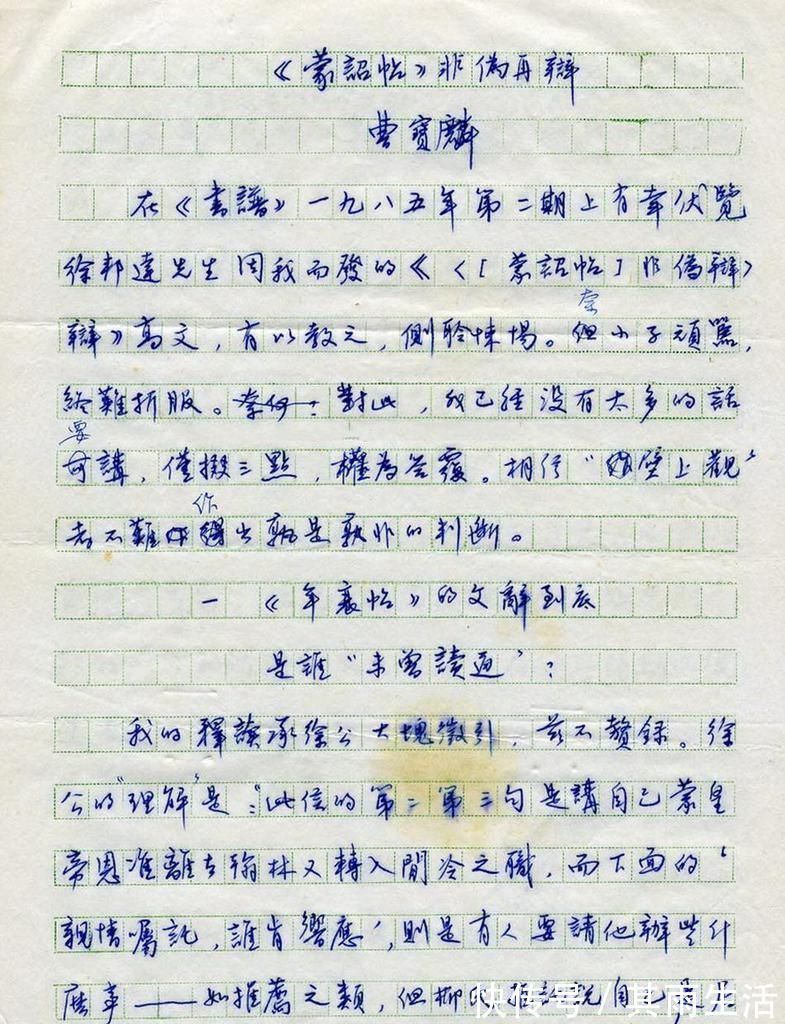 《蒙詔帖》非偽再辯
曹寶麟
在《書譜》一九八五年第二期上有幸伏覽
徐邦達先生因我而發的《〈[蒙詔帖]非偽辯〉
辯》高文,有以教之,側聆悚惕。但小子頑嚚,
奈
終難折服。奈何?對此,我已經没有太多的話
要
可講,僅掇三點,權為答覆。相信“壁上觀”
作
者不難得出孰是孰非的判斷。
一 《年衰帖》的文辭到底
是誰“未曾讀通”?
我的釋讀承徐公大塊徵引,兹不贅録。徐
公的“理解”是:“此信的第二第三句是講自己蒙皇
帝恩准離去翰林又轉入閒冷之職,而下面的‘
親情囑託,誰肯響應’,則是有人要請他辦些什
麽事——如推薦之類,但柳
快传号/其雨生活